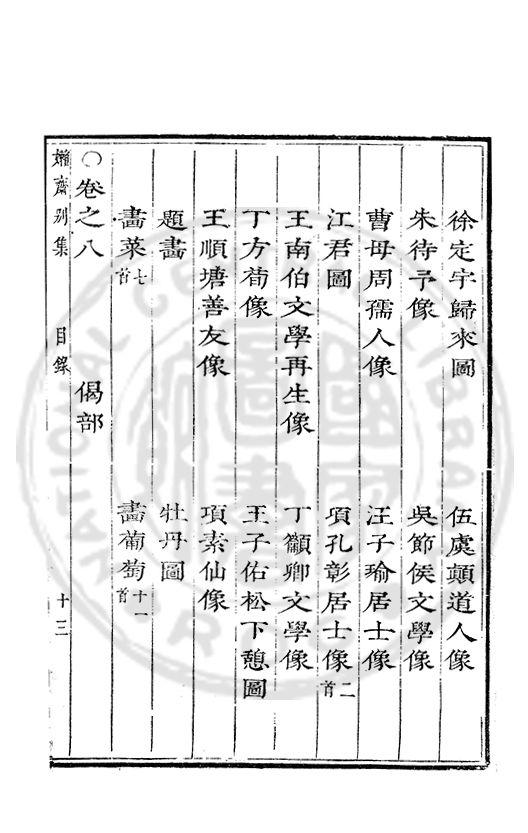 徐定宇歸來圖 伍虞顛道人像
朱待予像 吳節侯文學像
曹母周孺人像 汪子瑜居士像
江君圖 項孔彰居士像二首
王南伯文學再生像 丁籲卿文學像
丁方荀像 王子佑松下憩圖
王順塘善友像 項素仙像
題畫 牡丹圖
畵菜七首 畵葡萄十一首
○卷之八 偈部
嬾齋別集 目錄 十三